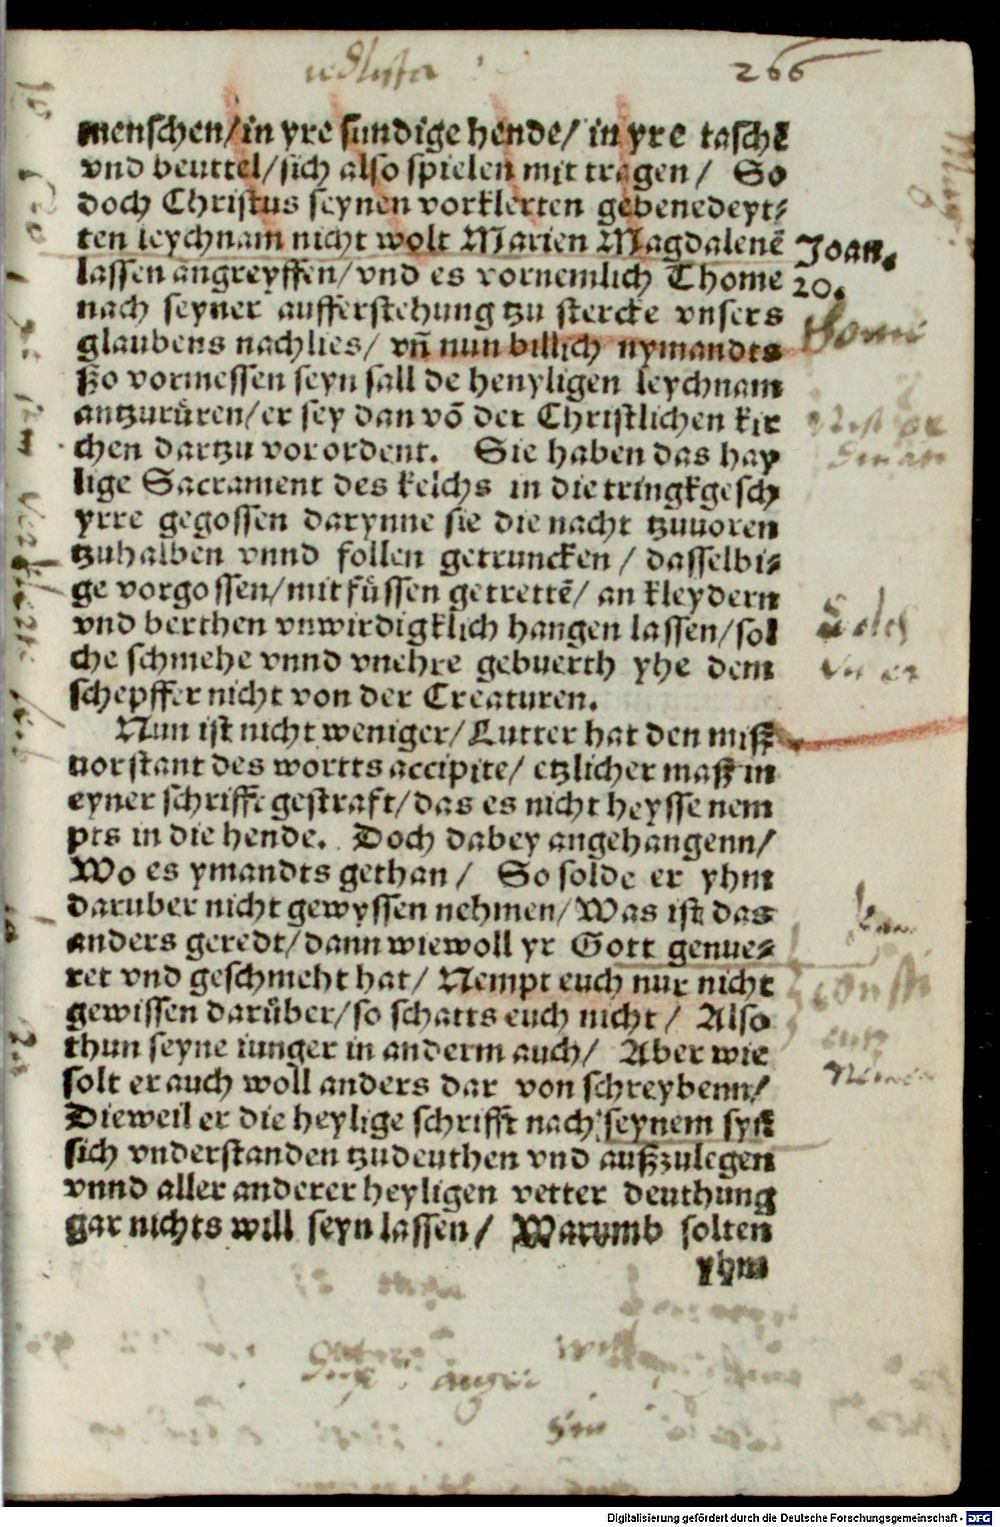 266
menschen/in yre sundige hende/ in yre taschē
vnd beuttel/sich also spielen mit tragen/ So
doch Christus seynen vorklerten gebenedeyt⸗
ten leychnam nicht wolt Marien Magdalenē
Joan.
lassen angreyffen/vnd es vornemlich Thome
20.
nach seyner aufferstehung tzu stercke vnsers
glaubens nachlies/ vn̄ nun billich nymandts
ßo vormessen seyn sall de henyligen leychnam
antzurůren/er sey dan vō der Christlichen kir
chen dartzu vorordent. Sie haben das hay
lige Sacrament des kelchs in die tringkgesch
yrre gegossen darynne sie die nacht tzuuoren
tzuhalben vnnd follen getruncken / dasselbi⸗
ge vorgossen/mit fůssen getrettē/ an kleydern
vnd berthen vnwirdigklich hangen lassen/sol
che schmehe vnnd vnehre gebuerth yhe dem
schepffer nicht von der Creaturen.
Nun ist nicht weniger/Lutter hat den miß
uorstant des wortts accipite/ etzlicher maß in
eyner schrifft gestraft/das es nicht heysse nem
pts in die hende. Doch dabey angehangenn/
Wo es ymandts gethan / So solde er yhm
daruber nicht gewyssen nehmen/Was ist das
anders geredt/dann wiewoll yr Gott genue⸗
ret vnd geschmeht hat/ Nempt euch nur nicht
gewissen darůber/so schatts euch nicht/ Also
thun seyne iunger in anderm auch/ Aber wie
solt er auch woll anders dar von schreybenn/
Dieweil er die heylige schrifft nach seynem syn
sich vnderstanden tzudeuthen vnd außzulegen
vnnd aller anderer heyligen vetter deuthung
gar nichts will seyn lassen/ Warumb solten
yhm
Digitalisierung gefördert durch die Deutsche Forschungsgemeinschaft - DFG